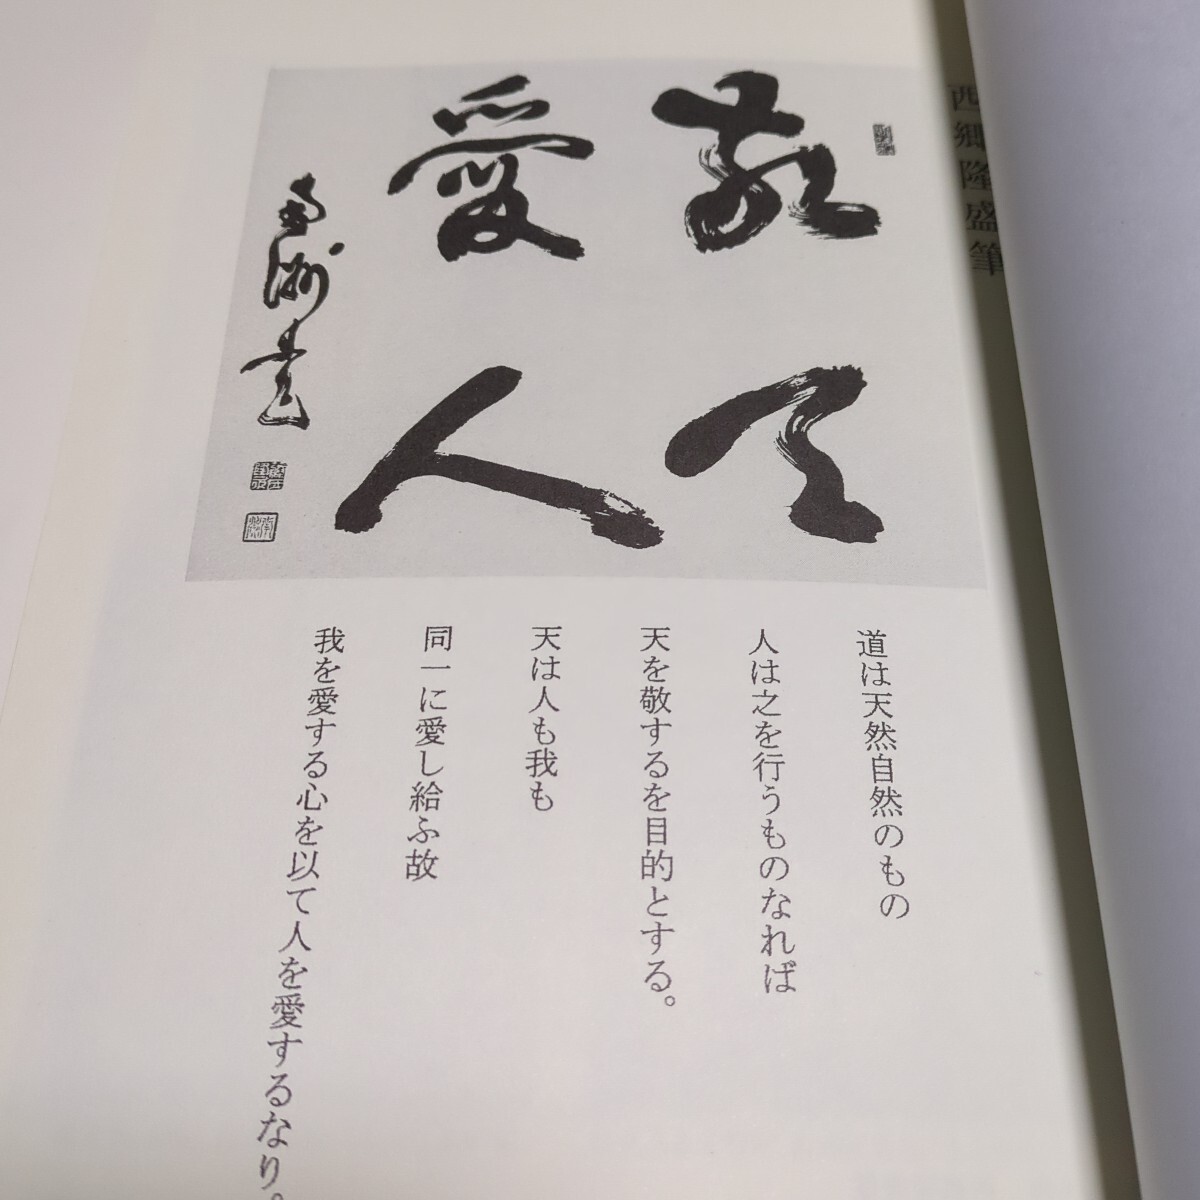 西郷隆盛筆
敬天
愛人
南洲書
道は天然自然のもの
人は之を行うものなれば
天を敬するを目的とする。
天は人も我も
同一に愛し給ふ故
我を愛する心を以て人を愛するなり。